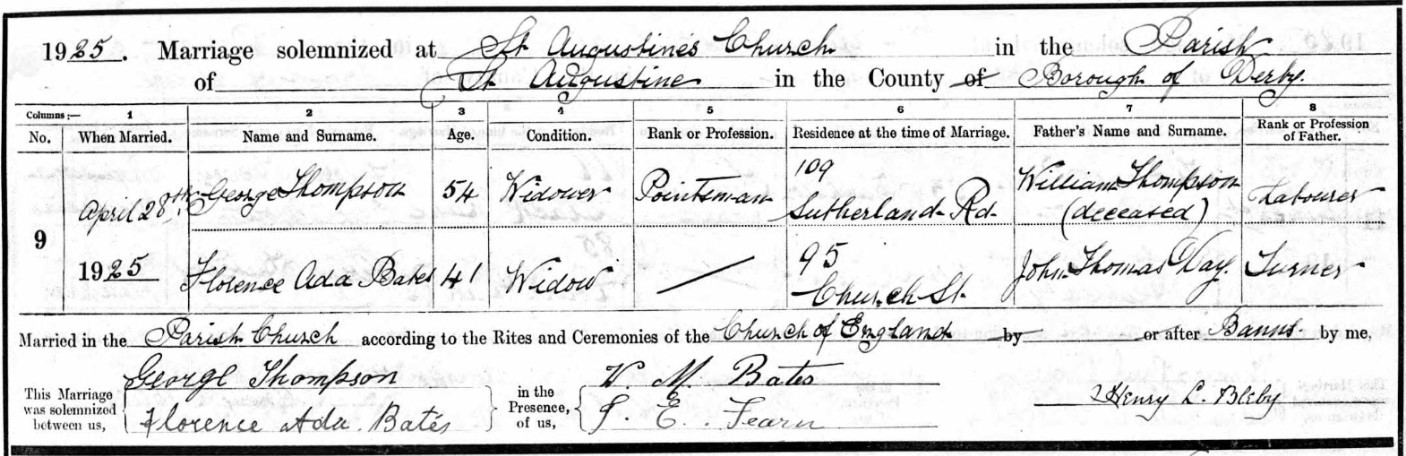 1925. Marriage solemnized at St Augustines Church in the Parish
of St Augustine in the County of Borough of Derby.
Columns:— 1 2 3 4 5 6 7 8
No. When Married. Name and Surname. Age. Condition. Rank or Profession. Residence at the time of Marriage. Father's Name and Surname. Rank or Profession of Father.
9 April 28th 1925 George Thompson 54 Widower Pointsman 109 Sutherland Rd. William Thompson (deceased) Labourer
Florence Ada Bates 41 Widow — 95 Church St. John Thomas Way. Turner
Married in the Parish Church according to the Rites and Ceremonies of the Church of England by or after Banns by me,
This Marriage was solemnized between us, George Thompson
Florence Ada Bates
in the Presence of us, W. M. Bates
J. E. Fearn
Henry L. Bleby